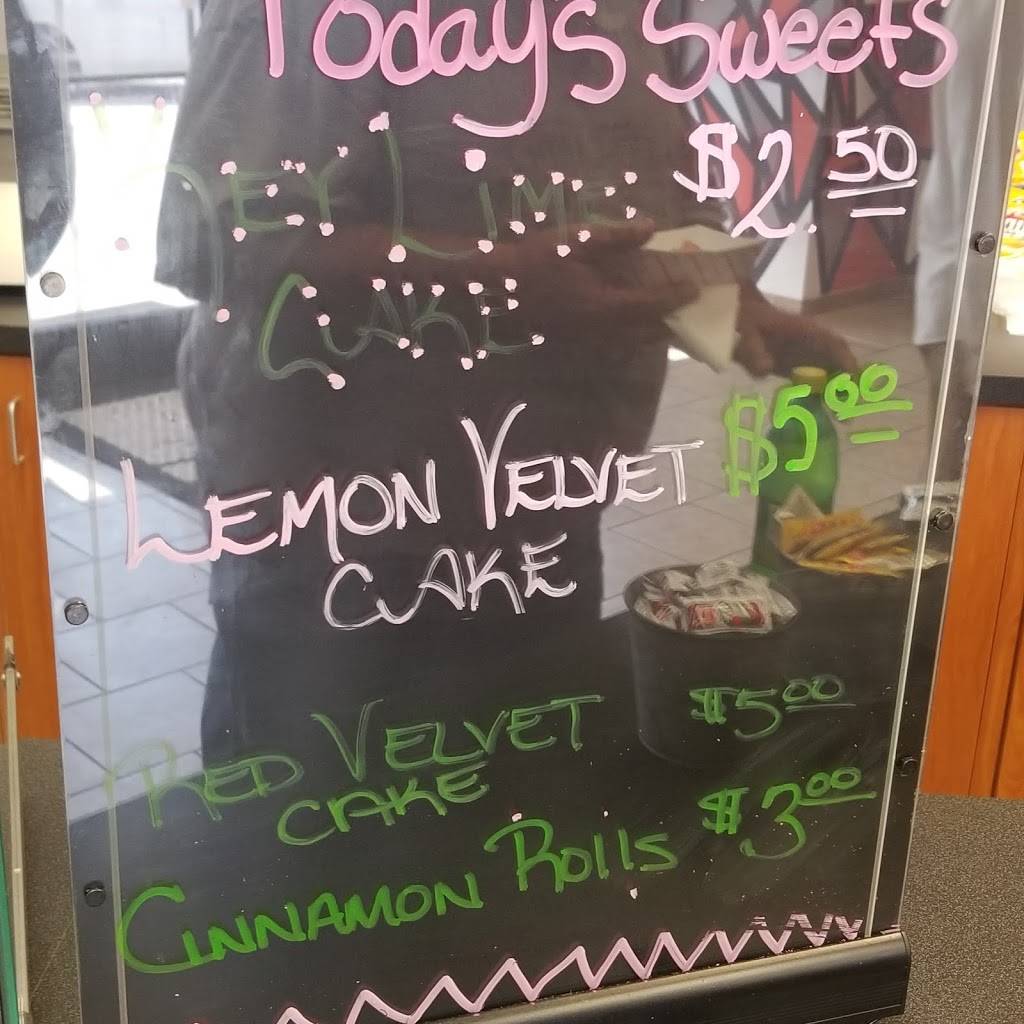 Today's Sweets
Key Lime $2.50
Cake
Lemon Velvet $5.00
Cake
Red Velvet $5.00
Cake
Cinnamon Rolls $3.00